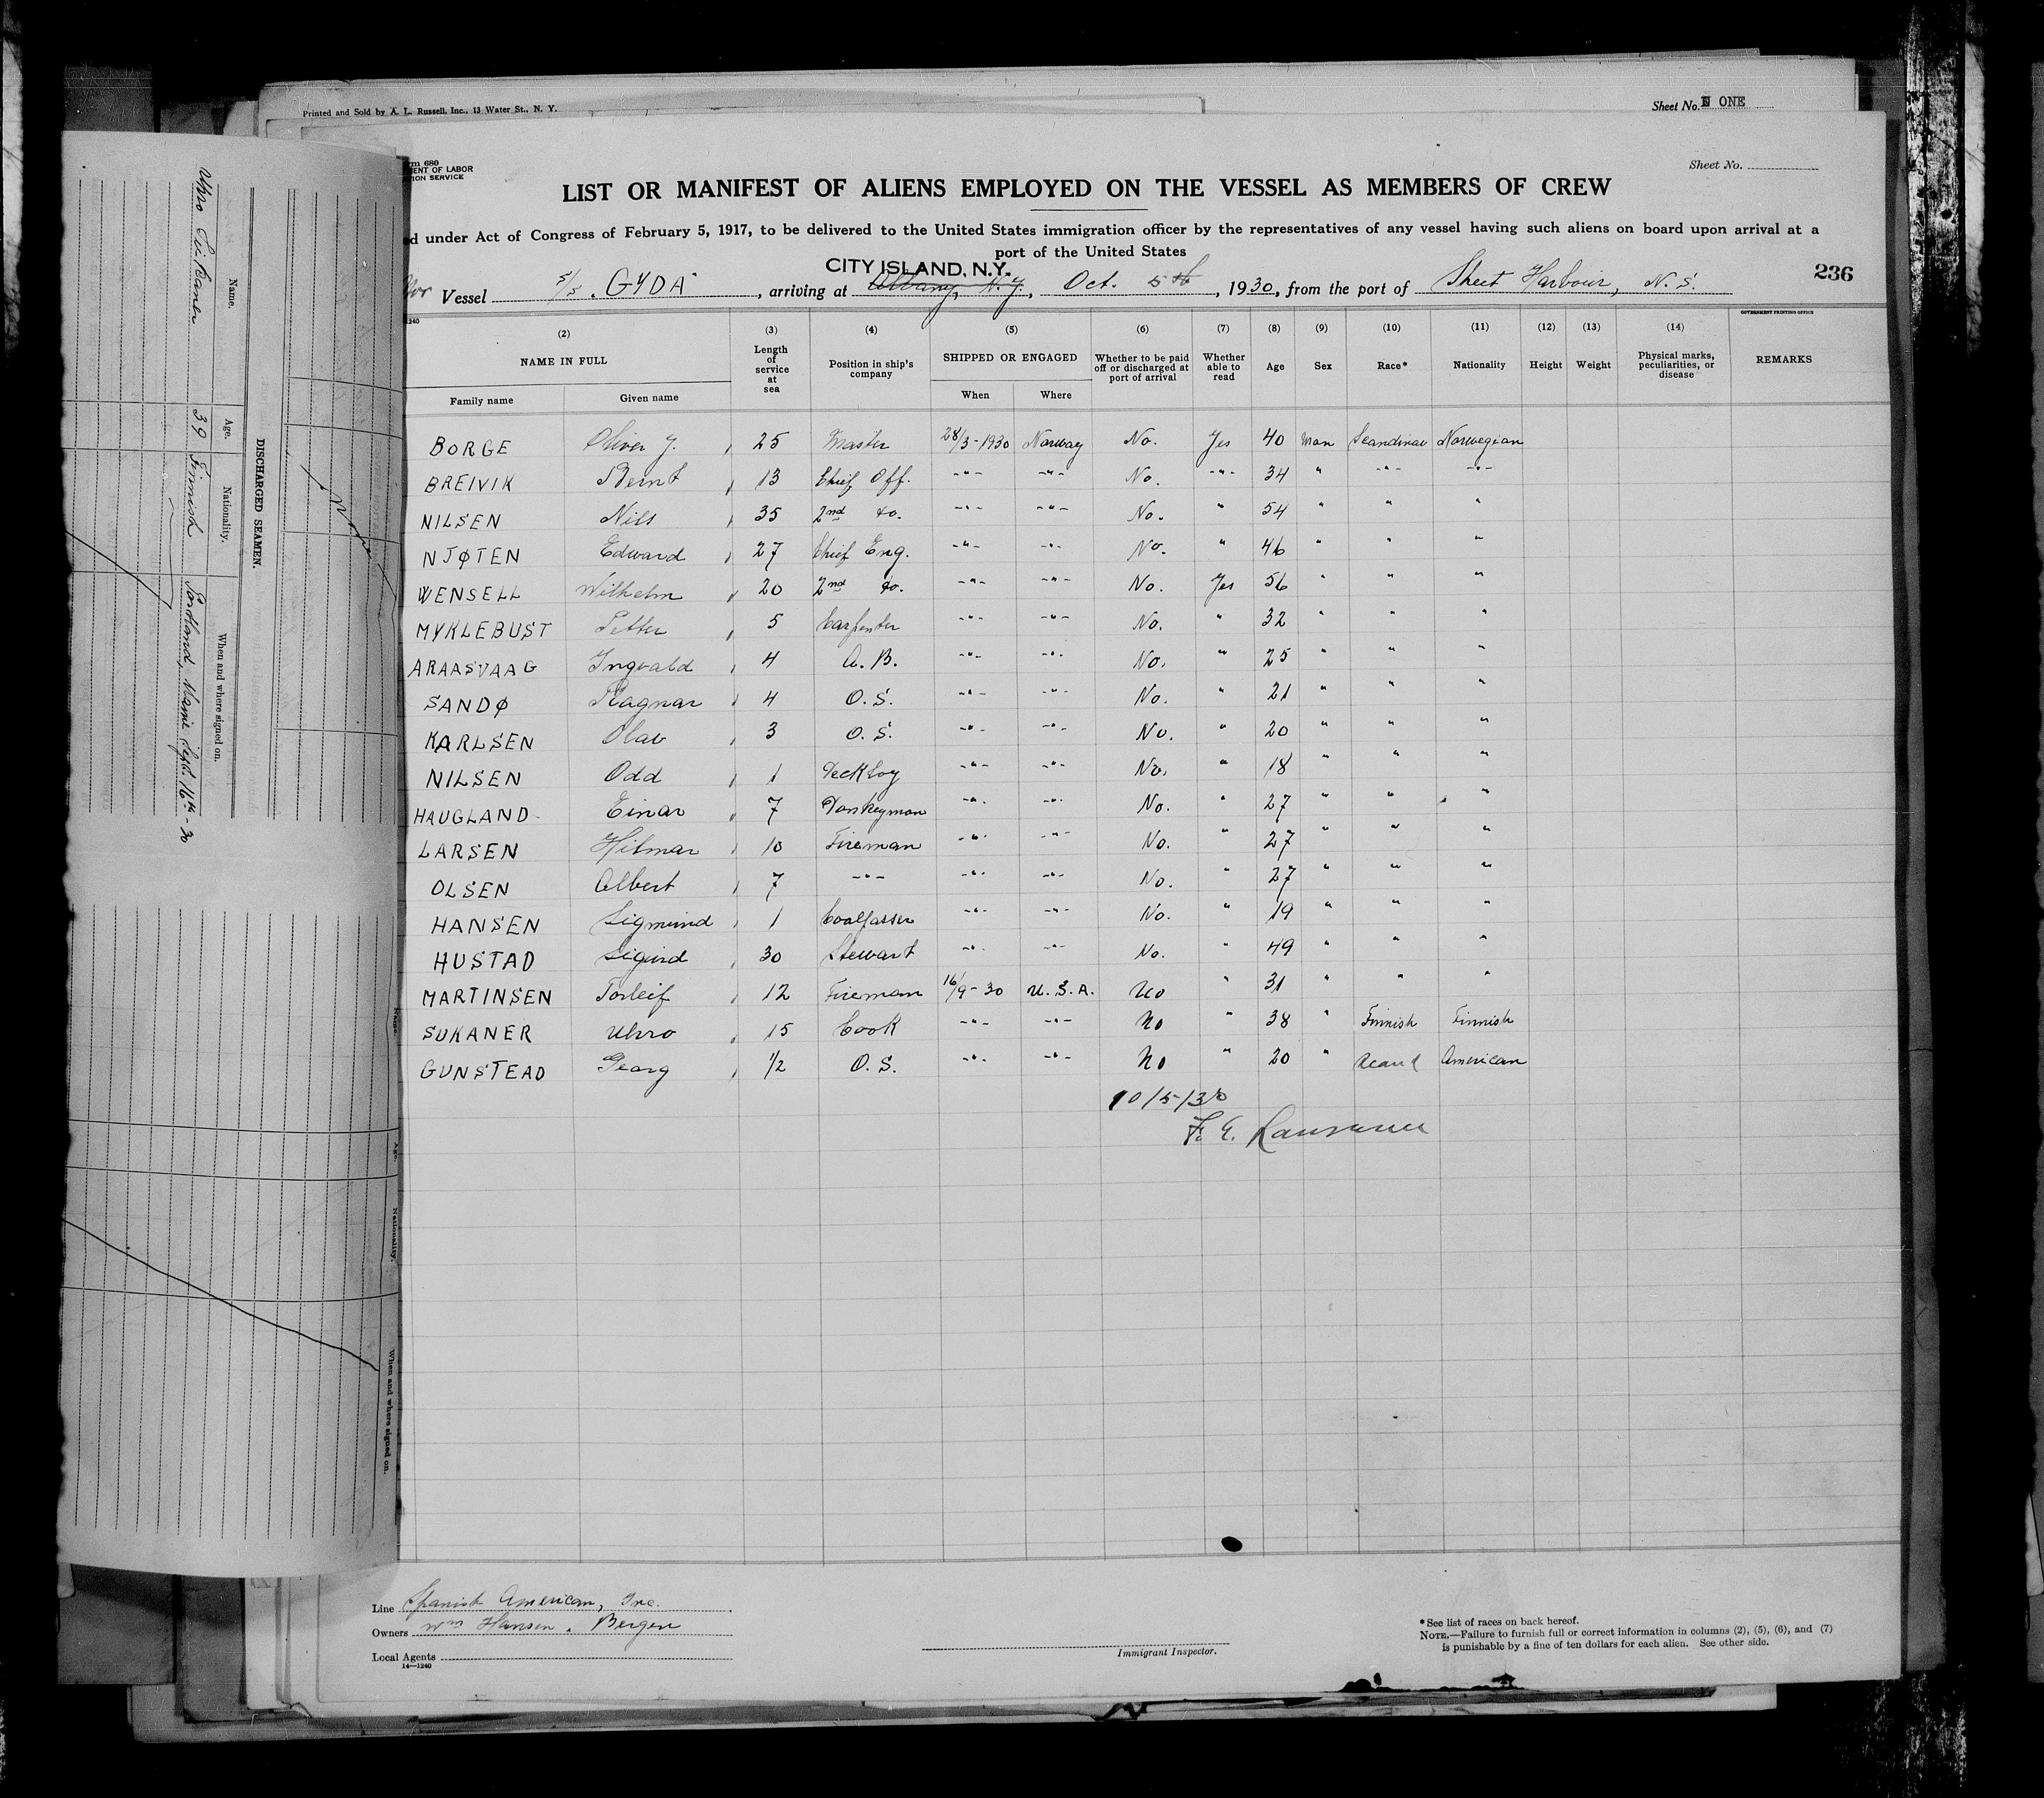 Printed and Sold by A. L. Russell, Inc., 13 Water St., N. Y.
Sheet No. ONE
rm 680
MENT OF LABOR
ION SERVICE
Sheet No.
LIST OR MANIFEST OF ALIENS EMPLOYED ON THE VESSEL AS MEMBERS OF CREW
ed under Act of Congress of February 5, 1917, to be delivered to the United States immigration officer by the representatives of any vessel having such aliens on board upon arrival at a
port of the United States
CITY ISLAND, N.Y.
236
Nor Vessel S/S. GYDA, arriving at Albany, N.Y., Oct. 5th, 1930, from the port of Sheet Harbour, N. S.
1240
GOVERNMENT PRINTING OFFICE
(2) (3) (4) (5) (6) (7) (8) (9) (10) (11) (12) (13) (14)
NAME IN FULL Length of service at sea Position in ship's company SHIPPED OR ENGAGED Whether to be paid off or discharged at port of arrival Whether able to read Age Sex Race* Nationality Height Weight Physical marks, peculiarities, or disease REMARKS
Family name Given name When Where
BORGE Oliver J. 25 Master 28/3-1930 Norway No. Yes 40 Man Scandinav Norwegian
BREIVIK Bernt 13 Chief Off. -"- -"- No. -"- 34 " -"- -"-
NILSEN Nils 35 2nd do. -"- -"- No. " 54 " " "
NJØTEN Edward 27 Chief Eng. -"- -"- No. " 46 " " "
WENSELL Wilhelm 20 2nd do. -"- -"- No. Yes 56 " " "
MYKLEBUST Petter 5 Carpenter -"- -"- No. " 32 " " "
ARAASVAAG Ingvald 4 A. B. -"- -"- No. " 25 " " "
SANDØ Ragnar 4 O. S. -"- -"- No. " 21 " " "
KARLSEN Olav 3 O. S. -"- -"- No. " 20 " " "
NILSEN Odd 1 Deckboy -"- -"- No. " 18 " " "
HAUGLAND Einar 7 Donkeyman -"- -"- No. " 27 " " "
LARSEN Hilmar 10 Fireman -"- -"- No. " 27 " " "
OLSEN Albert 7 -"- -"- -"- No. " 27 " " "
HANSEN Sigmund 1 Coalpasser -"- -"- No. " 19 " " "
HUSTAD Sigurd 30 Stewart -"- -"- No. " 49 " " "
MARTINSEN Torleif 12 Fireman 16/9-30 U. S. A. No " 31 " " "
SUKANER Uhro 15 Cook -"- -"- No " 38 " Finnish Finnish
GUNSTEAD Georg 1/2 O. S. -"- -"- No " 20 " Scand American
10/5/30
Line Spanish American, Inc.
Owners Wm Hansen, Bergen
Local Agents
14—1240
Immigrant Inspector.
*See list of races on back hereof.
NOTE.—Failure to furnish full or correct information in columns (2), (5), (6), and (7)
is punishable by a fine of ten dollars for each alien. See other side.
DISCHARGED SEAMEN.
Name. Age. Nationality. When and where signed on.
39 Finnish Portland, Maine Sept. 16th 30
Name. Age. Nationality. When and where signed on.